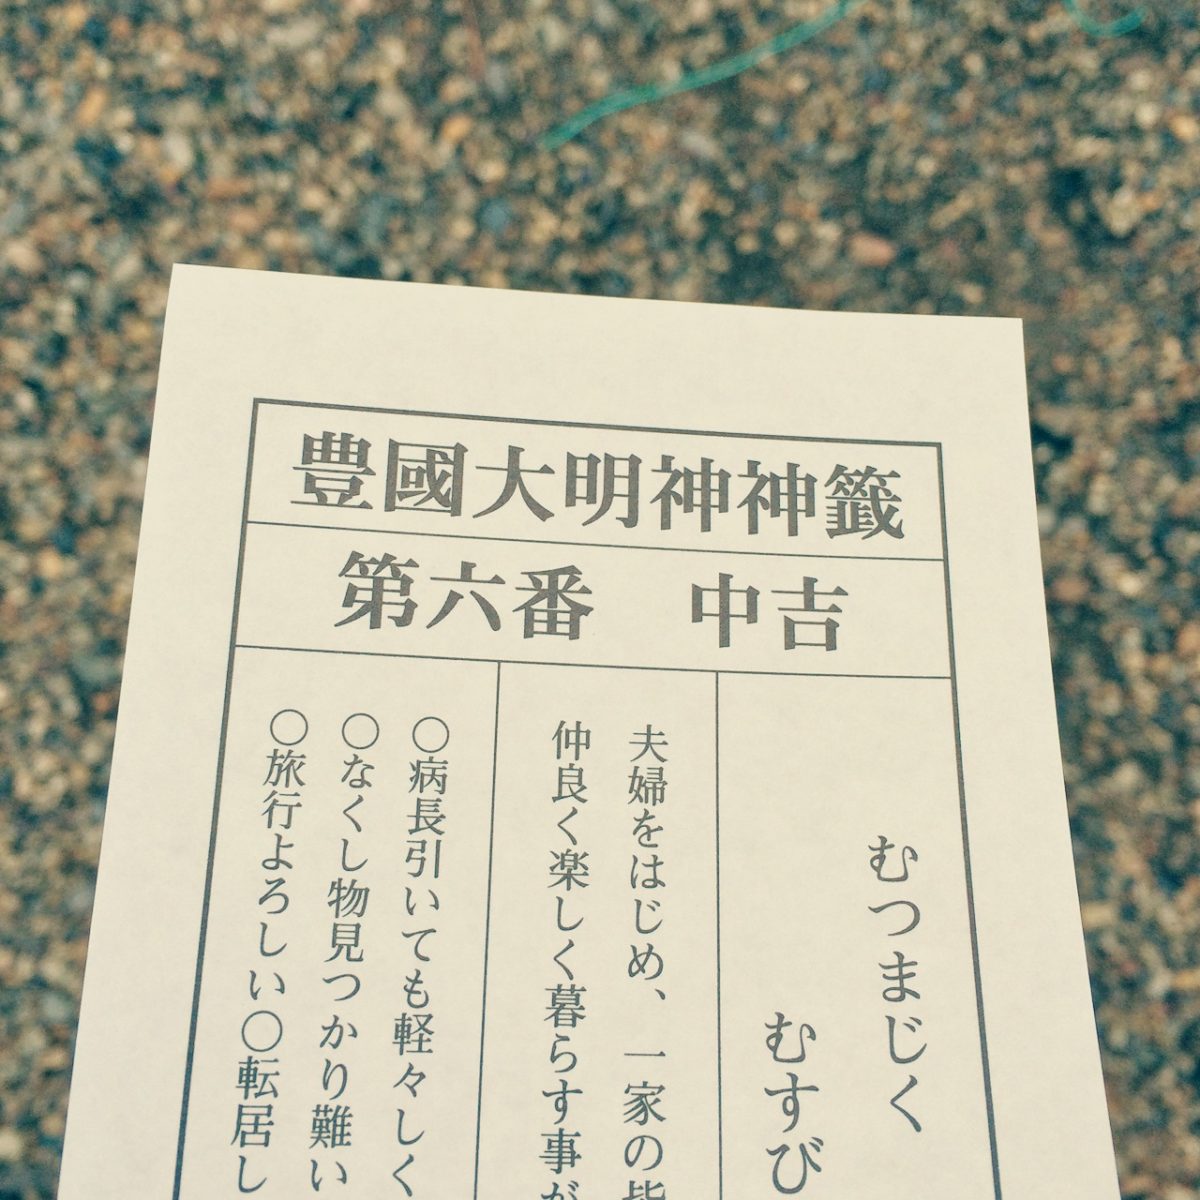 豊國大明神神籤
第六番　中吉
むつまじく
むすび
夫婦をはじめ、一家の皆
仲良く楽しく暮らす事が
〇病長引いても軽々しく
〇なくし物見つかり難い
〇旅行よろしい〇転居し